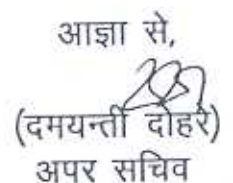 आज्ञा से,
(दमयन्ती दोहरे)
अपर सचिव